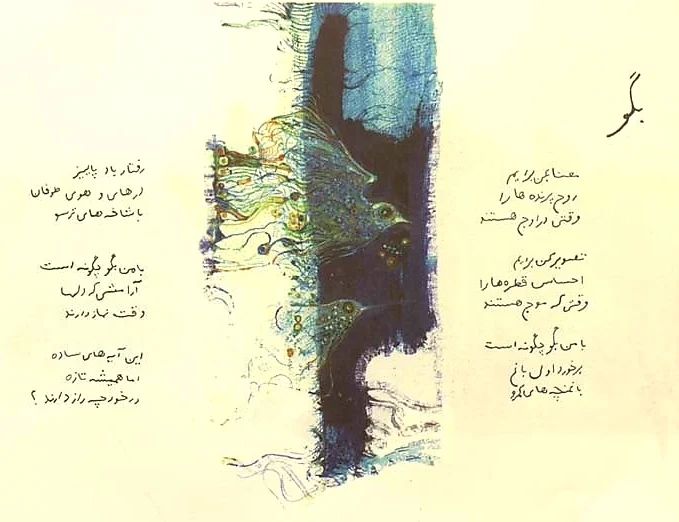 بگو
معنا کن برایم
روح پرنده ها را
وقتی در اوج هستند
تصویر کن برایم
احساس قطره ها را
وقتی که موج هستند
با من بگو چگونه است
برخورد اول باغ
با غنچه های کمرو
رفتار باد پاییز
در های و هوی طوفان
با شاخه های ترسو
با من بگو چگونه است
آرامشی که دلها
وقت نماز دارند
این آیه های ساده
اما همیشه تازه
در خود چه راز دارند ؟